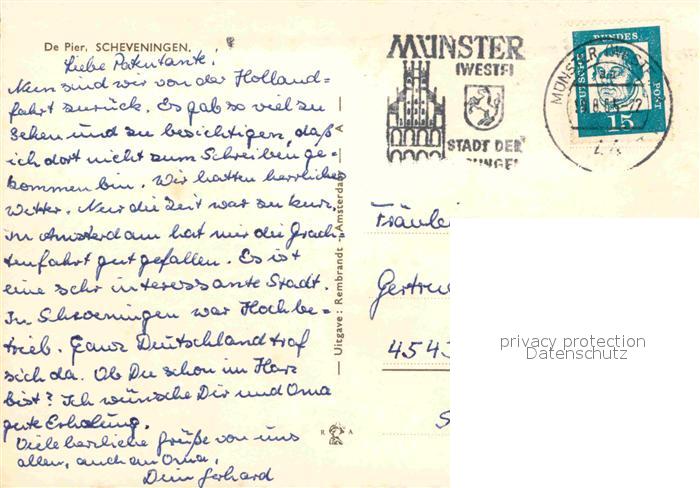 De Pier, SCHEVENINGEN.
Liebe Patentante!
Nun sind wir von der Holland=
fahrt zurück. Es gab so viel zu
sehen und zu besichtigen, daß
ich dort nicht zum Schreiben ge=
kommen bin. Wir hatten herrliches
Wetter. Nur die Zeit war zu kurz.
In Amsterdam hat mir die Grach=
tenfahrt gut gefallen. Es ist
eine sehr interessante Stadt.
In Scheveningen war Hochbe=
trieb. Ganz Deutschland traf
sich da. Ob Du schon im Harz
bist? Ich wünsche Dir und Oma
gute Erholung.
Viele herzliche Grüße von uns
allen, auch an Oma.
Dein Gerhard
Uitgave: Rembrandt - Amsterdam
R A
MÜNSTER
(WESTF)
STADT DER
MÜNSTER (WESTF)
DEUTSCHE BUNDESPOST
15
Fräulei
Gertru
4543
S
privacy protection
Datenschutz